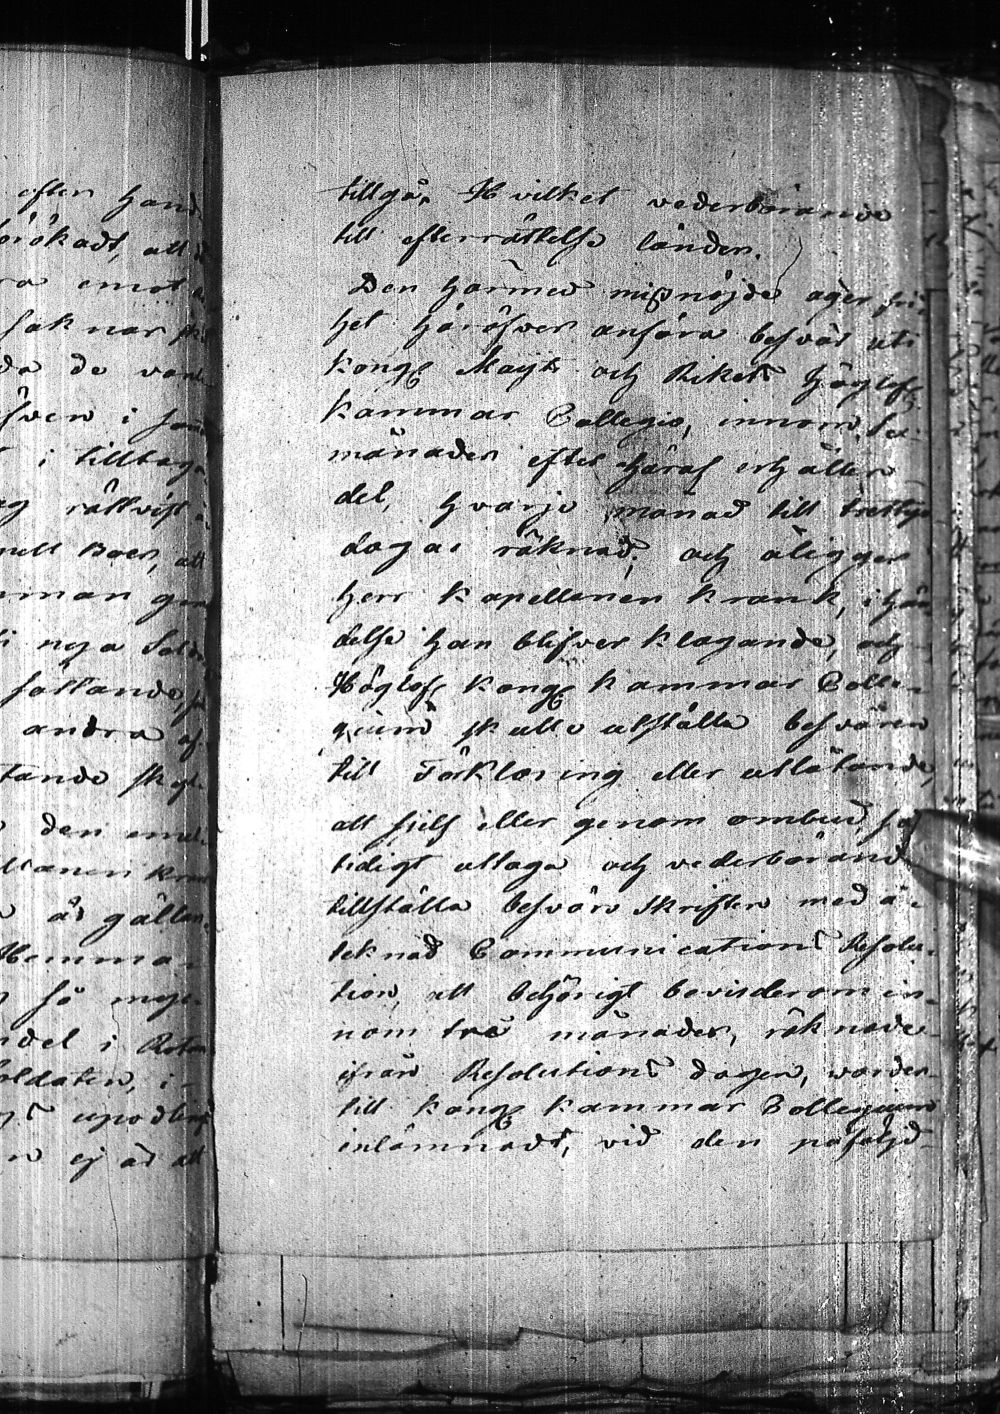 efter hand
förökadt, att
ra emot
saknar
da de
även i
i tilltag
rättvist
Boer, att
man
nya
fallande,
andra af
tande
den
är gällan
Hemma
så myc
del i Rote
soldaten, i
ej är att
tillgå. Hvilket vederbörande
till efterrättelse länder.
Den härmed mißnöjde äger fri
het häröfver anföra besvär uti
Kongl Mayts och Rikets Höglofl
Kammar Collegio, innom sex
månader efter häraf erhållen
del, hvarje månad till trettijo
dagar räknad, och åligger
Herr Kapellanen Krank, i hän
delse han blifver klagande, och
Höglofl Kongl Kammar Colle-
gium skulle utställa besvären
till Förklaring eller utlåtande,
att sielf eller genom ombud, så
tidigt uttaga och vederbörande
tillställa besvärs skriften med å-
teknad Communications Resolu-
tion, att behörigt bevis derom in-
nom tre månader, räknade
ifrån Resolutions dagen, warder
till Kongl Kammar Collegium
inlämnadt, vid den påföljd